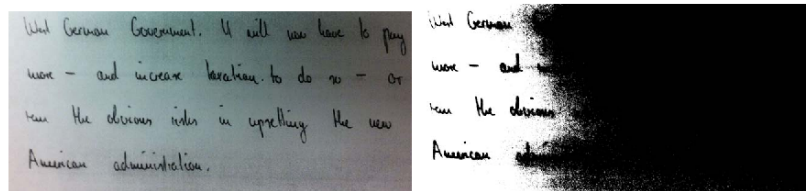 West German Government. It will now have to pay
more - and increase taxation to do so - or
run the obvious risks in upsetting the new
American administration.
West German
more - and
run the obvious
American